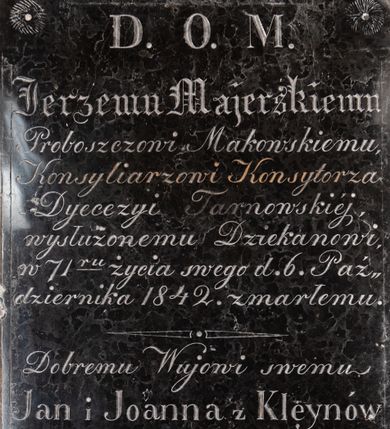 D. O. M.
Jerzemu Majerskiemu
Proboszczowi Makowskiemu,
Konsyliarzowi Konsytorza
Dyecezyi Tarnowskiéj,
wysłużonemu Dziekanowi
w 71 ru życia swego d. 6. Paź„
dziernika 1842. zmarłemu.
Dobremu Wujowi swemu
Jan i Joanna z Kleynów